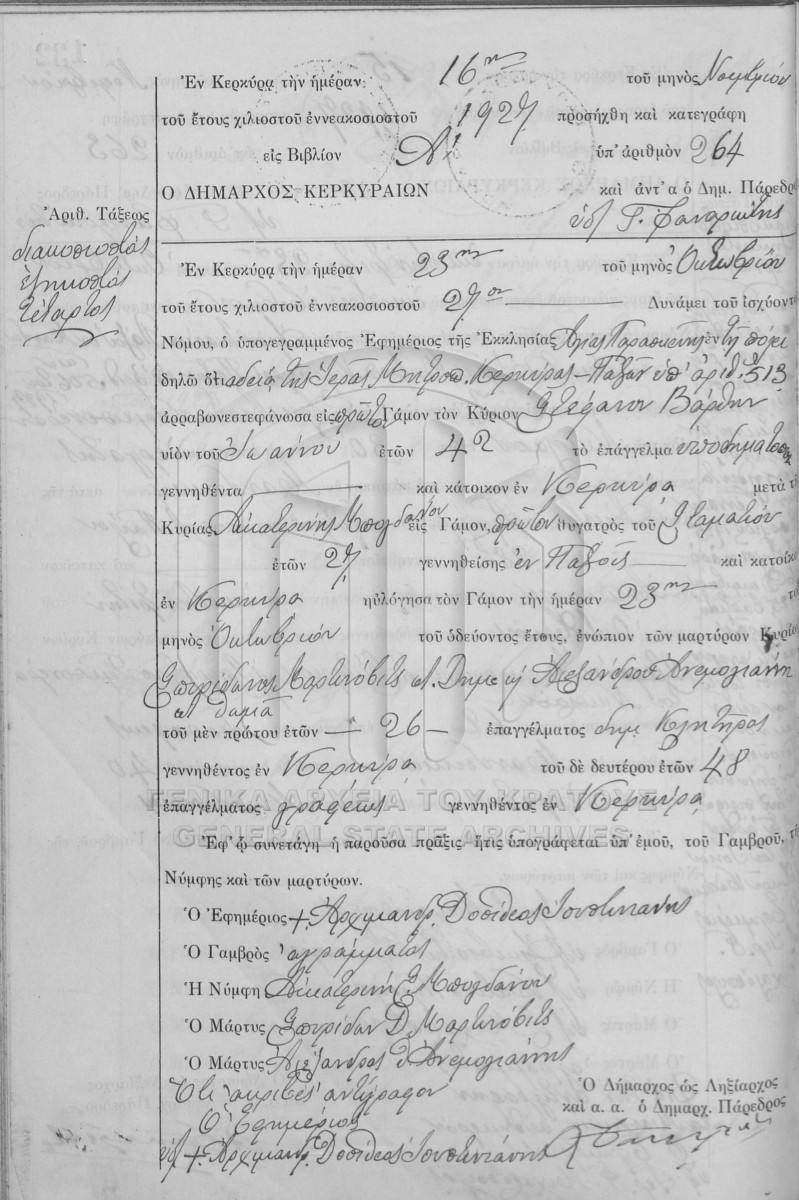 Ἐν Κερκύρᾳ τὴν ἡμέραν 16ην τοῦ μηνὸς Νοεμβρίου
τοῦ ἔτους χιλιοστοῦ ἐννεακοσιοστοῦ 1927 προσήχθη καὶ κατεγράφη
εἰς Βιβλίον Α' ὑπ' ἀριθμὸν 264
Ο ΔΗΜΑΡΧΟΣ ΚΕΡΚΥΡΑΙΩΝ καὶ ἀντ' α ὁ Δημ. Πάρεδρο
Ἀριθ. Τάξεως
διακοσιοστός
ἑξηκοστός
τέταρτος
Ἐν Κερκύρᾳ τὴν ἡμέραν 23ην τοῦ μηνὸς Ὀκτωβρίου
τοῦ ἔτους χιλιοστοῦ ἐννεακοσιοστοῦ 27ου Δυνάμει τοῦ ἰσχύοντ
Νόμου, ὁ ὑπογεγραμμένος Ἐφημέριος τῆς Ἐκκλησίας Ἁγίας Παρασκευῆς ἐν τῇ πόλει
δηλῶ ὅτι ἀδείᾳ τῆς Ἱερᾶς Μητροπ. Κερκύρας - Παξῶν ὑπ' ἀριθ. 513
ἀρραβωνεστεφάνωσα εἰς πρῶτον Γάμον τὸν Κύριον Στέφανον Βάρθην
υἱὸν τοῦ Ἰωάννου ἐτῶν 42 τὸ ἐπάγγελμα ὑποδηματοπ
γεννηθέντα καὶ κάτοικον ἐν Κερκύρᾳ μετὰ τ
Κυρίας Αἰκατερίνης Μπογδάνου εἰς Γάμον, πρῶτον θυγατρὸς τοῦ Σταματίου
ἐτῶν 27 γεννηθείσης ἐν Παξοῖς καὶ κατοίκ
ἐν Κερκύρᾳ ηὐλόγησα τὸν Γάμον τὴν ἡμέραν 23ην τ
μηνὸς Ὀκτωβρίου τοῦ ὁδεύοντος ἔτους, ἐνώπιον τῶν μαρτύρων Κυρίω
Σπυρίδωνος Μαρτινόβιτς Δημ Ἀλεξάνδρου Ἀνεμογιάννη
τοῦ μὲν πρώτου ἐτῶν 26 ἐπαγγέλματος δημ. Κλητῆρος
γεννηθέντος ἐν Κερκύρᾳ τοῦ δὲ δευτέρου ἐτῶν 48
ἐπαγγέλματος γραφέως γεννηθέντος ἐν Κερκύρᾳ
ΓΕΝΙΚΑ ΑΡΧΕΙΑ ΤΟΥ ΚΡΑΤΟΥΣ
GENERAL STATE ARCHIVES
Ἐφ' ᾧ συνετάγη ἡ παροῦσα πρᾶξις ἥτις ὑπογράφεται ὑπ' ἐμοῦ, τοῦ Γαμβροῦ, τ
Νύμφης καὶ τῶν μαρτύρων.
Ὁ Ἐφημέριος + Ἀρχιμανδρ. Δοσίθεος
Ὁ Γαμβρὸς ἀγράμματος
Ἡ Νύμφη Αἰκατερίνη Σ Μπογδάνου
Ὁ Μάρτυς Σπυρίδων Δ. Μαρτινόβιτς
Ὁ Μάρτυς Ἀλέξανδρος Ἀνεμογιάννης
Ὅτι ἀκριβὲς ἀντίγραφον
Ὁ Ἐφημέριος
+ Ἀρχιμανδρ. Δοσίθεος
Ὁ Δήμαρχος ὡς Ληξίαρχος
καὶ α. α. ὁ Δημαρχ. Πάρεδρος